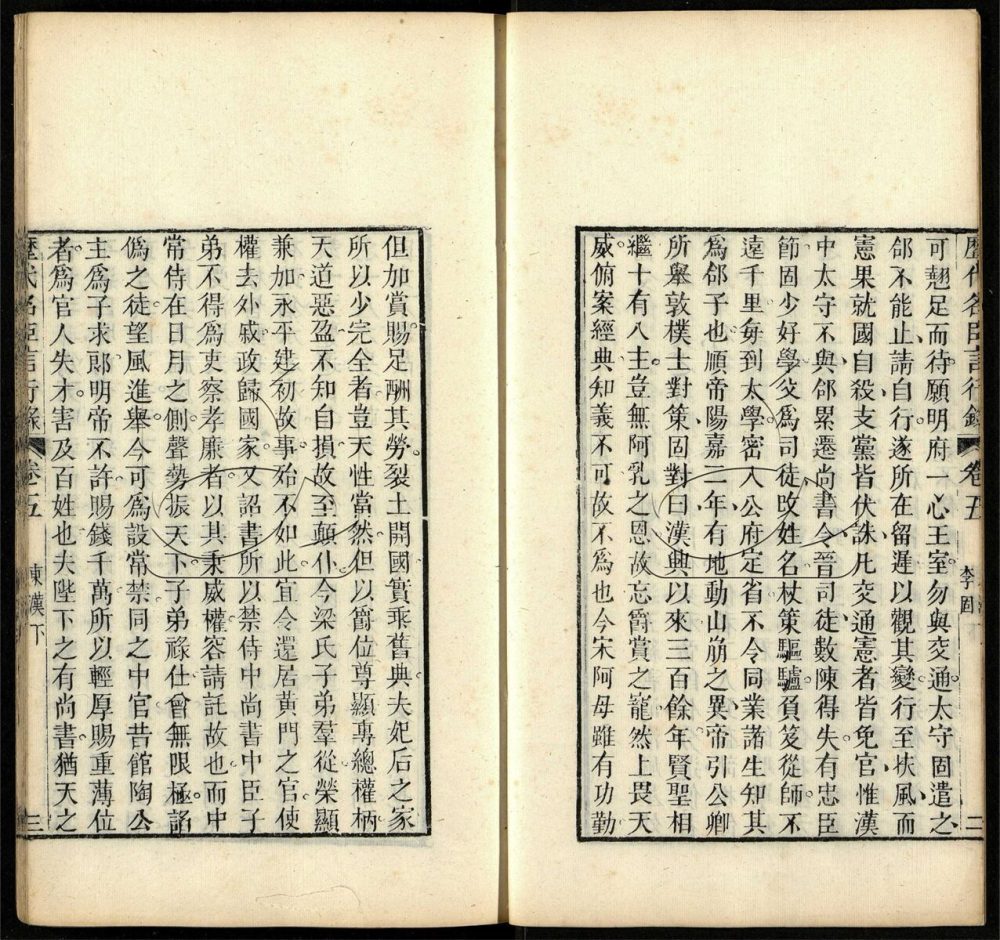 歷代名臣言行錄 卷五 李固 二
可翹足而待願明府一心王室勿與交通太守固遣之
郃不能止請自行遂所在留遲以觀其變行至扶風而
憲果就國自殺支黨皆伏誅凡交通憲者皆免官惟漢
中太守不與郃累遷尚書令晉司徒數陳得失有忠臣
節固少好學父爲司徒改姓名杖策驅驢負笈從師不
遠千里每到太學密入公府定省不令同業諸生知其
爲郃子也順帝陽嘉二年有地動山崩之異帝引公卿
所舉敦樸士對策固對曰漢興以來三百餘年賢聖相
繼十有八主豈無阿乳之恩故忘爵賞之寵然上畏天
威俯案經典知義不可故不爲也今宋阿母雖有功勤
但加賞賜足酬其勞裂土開國實乖舊典夫妃后之家
所以少完全者豈天性當然但以爵位尊顯專總權柄
天道惡盈不知自損故至顛仆今梁氏子弟羣從榮顯
兼加永平建初故事殆不如此宜令還居黃門之官使
權去外戚政歸國家又詔書所以禁侍中尚書中臣子
弟不得爲吏察孝廉者以其秉威權容請託故也而中
常侍在日月之側聲勢振天下子弟祿仕曾無限極諂
僞之徒望風進舉今可爲設常禁同之中官昔館陶公
主爲子求郎明帝不許賜錢千萬所以輕厚賜重薄位
者爲官人失才害及百姓也夫陛下之有尚書猶天之
歷代名臣言行錄 卷五 東漢下 三